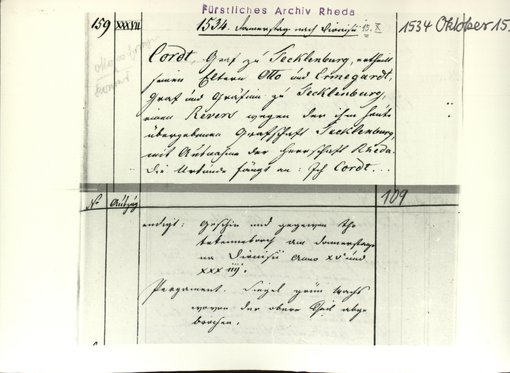 Fürstliches Archiv Rheda
159 XXXVII 1534. Donnerstag nach Dionisii 15. X 1534 Oktober 15.
Cordt Graf zu Tecklenburg, ertheilt
seinen Eltern Otto und Ermegardt,
Graf und Gräfin zu Tecklenburg,
einen Revers wegen der ihm heute
übergebenen Grafschaft Tecklenburg,
mit Ausnahme der Herrschaft Rheda.
Die Urkunde fängt an: Ich Cordt...
No Auszug 109
endigt: Geschein und gegeven tho
am donnerstage
na Dionisii Anno XV und
XXXIIIJ.
Pergament. Siegel grün Wachs
wovon der obere Theil abge
brochen.